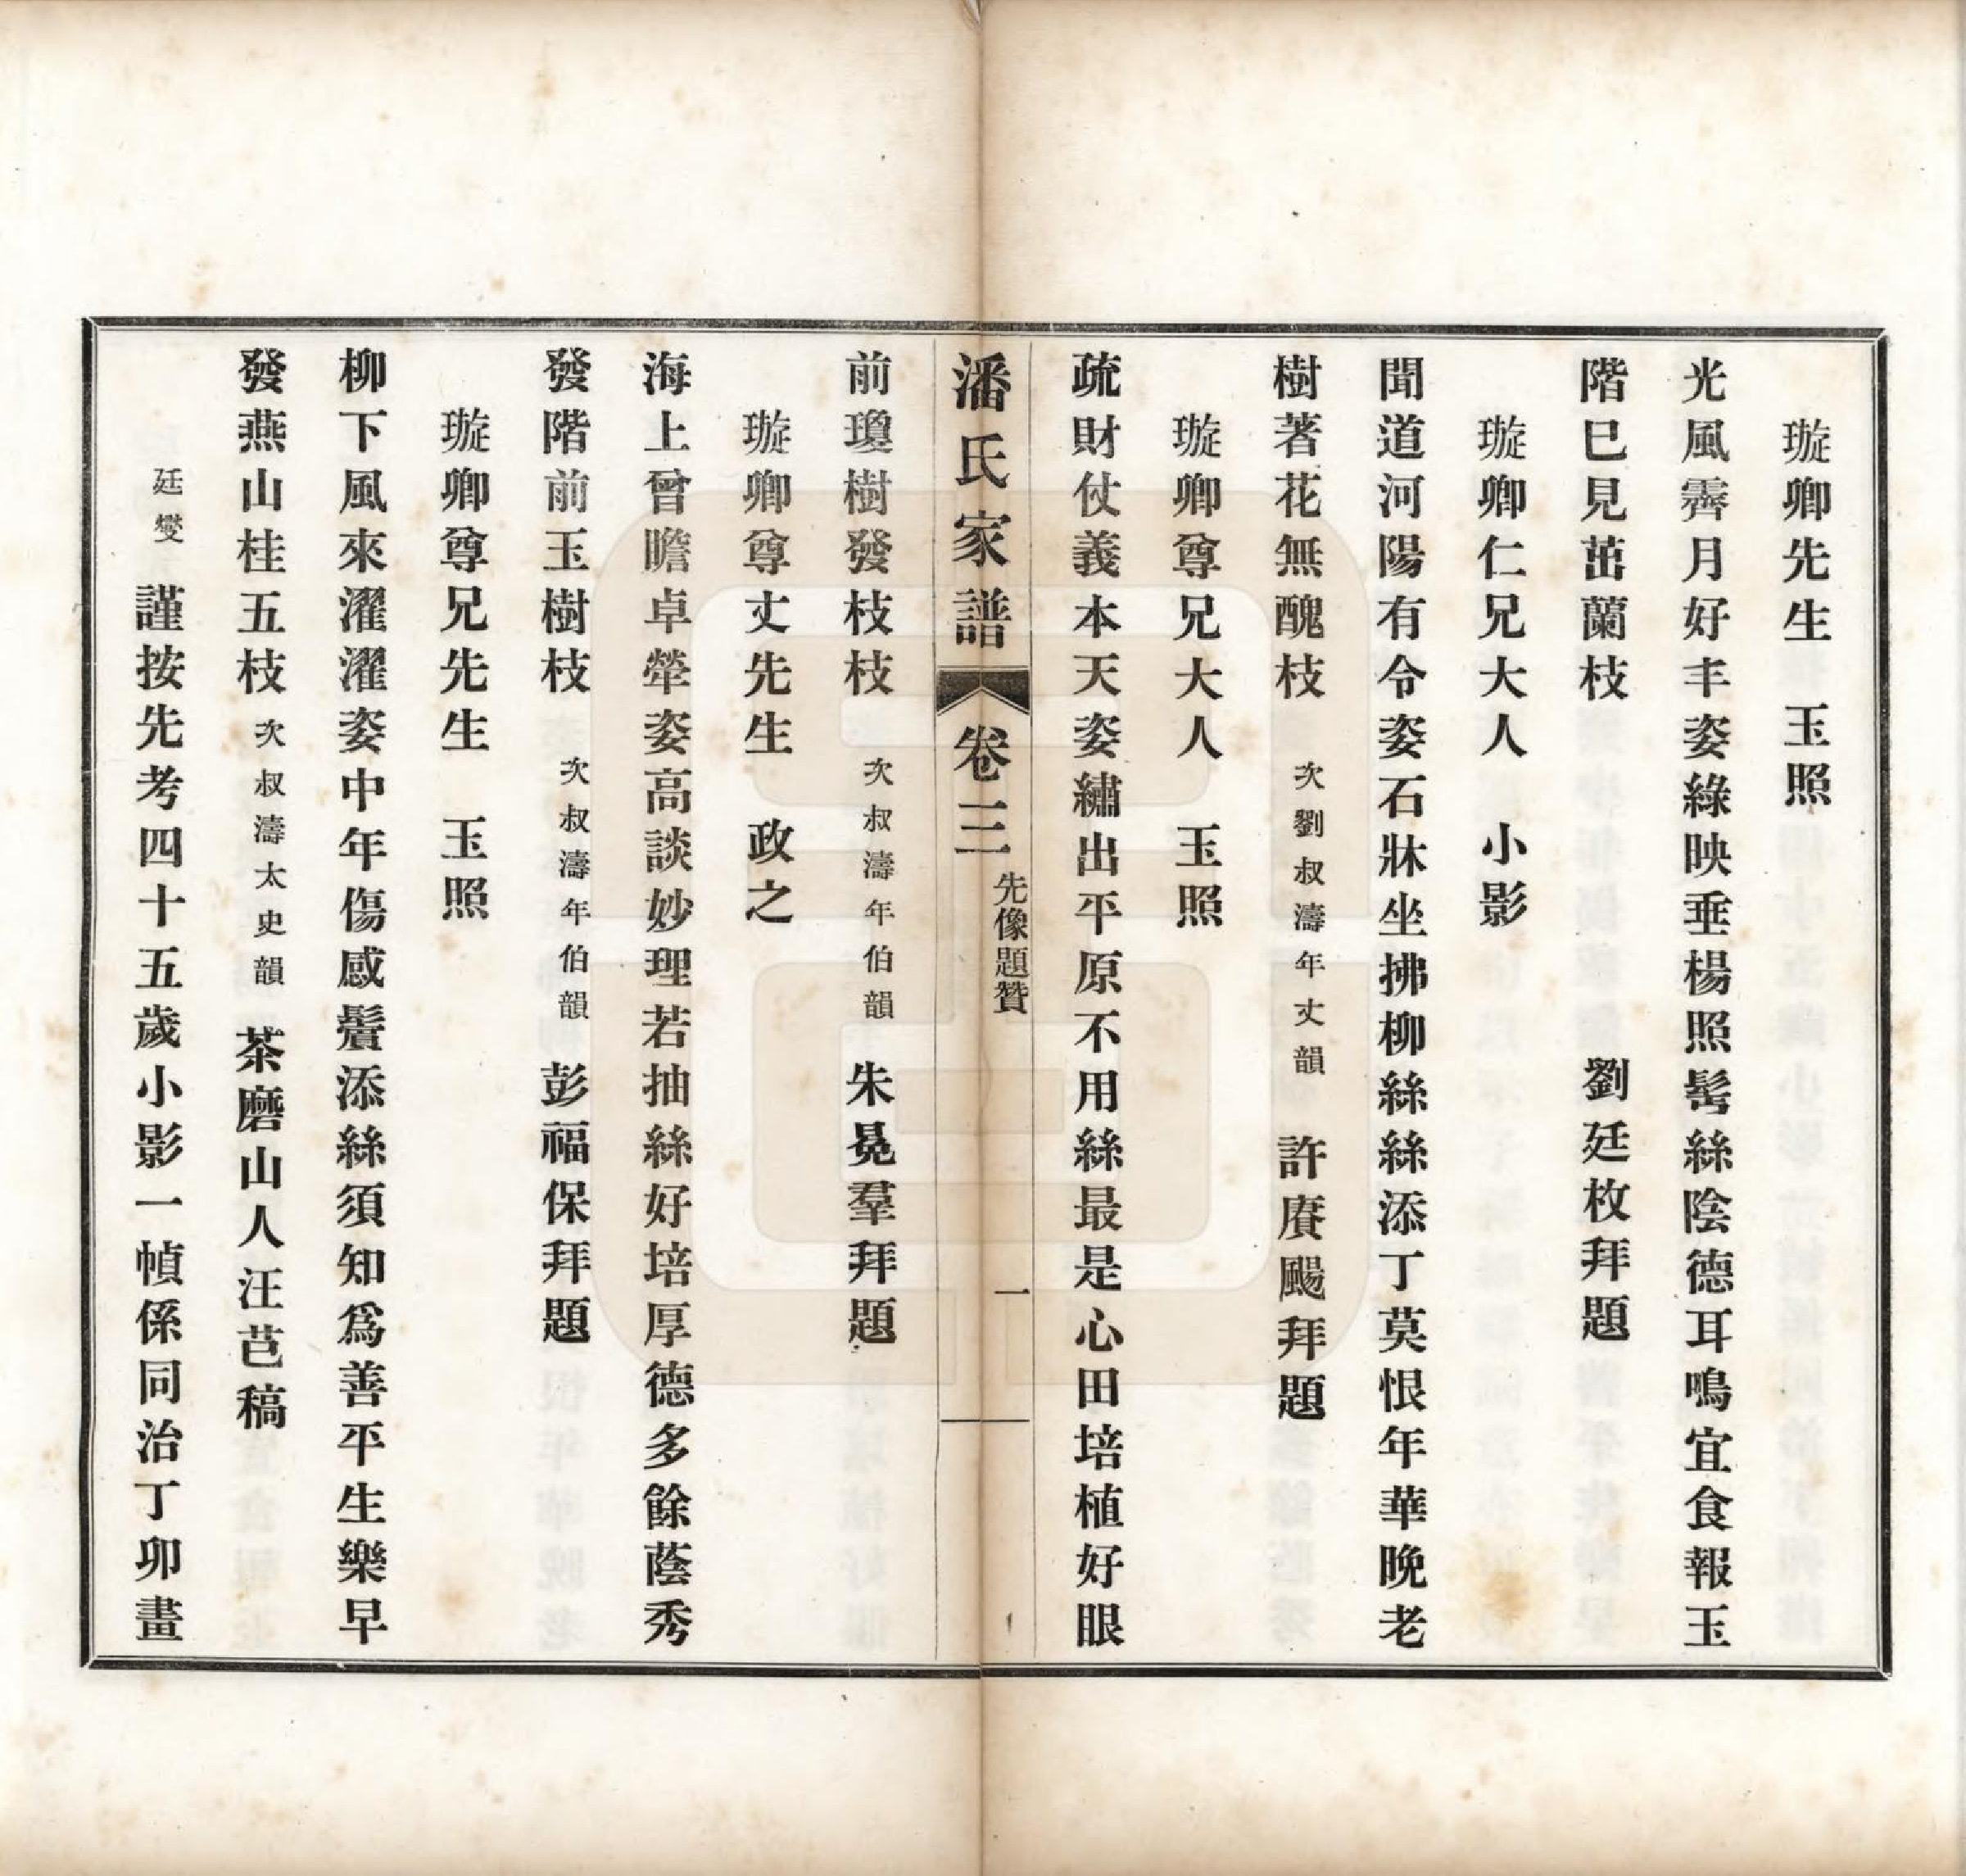 璇卿先生　玉照
光風霽月好丰姿綠映垂楊照髩絲陰德耳鳴宜食報玉
階巳見茁蘭枝　劉廷枚拜題
璇卿仁兄大人　小影
聞道河陽有令姿石牀坐拂柳絲絲添丁莫恨年華晚老
樹著花無醜枝　次劉叔濤年丈韻　許賡颺拜題
璇卿尊兄大人　玉照
疏財仗義本天姿繡出平原不用絲最是心田培植好眼
潘氏家譜　卷三　先像題贊　一
前瓊樹發枝枝　次叔濤年伯韻　朱冕羣拜題
璇卿尊丈先生　政之
海上曾瞻卓犖姿高談妙理若抽絲好培厚德多餘蔭秀
發階前玉樹枝　次叔濤年伯韻　彭福保拜題
璇卿尊兄先生　玉照
柳下風來濯濯姿中年傷感鬢添絲須知爲善平生樂早
發燕山桂五枝　次叔濤太史韻　茶磨山人汪芑稿
廷燮　謹按先考四十五歲小影一幀係同治丁卯畫